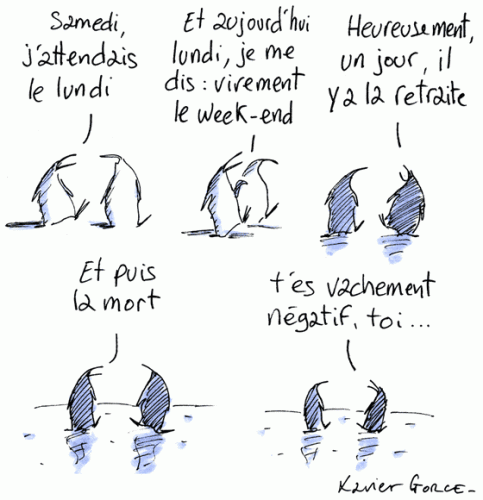 Samedi,
j'attendais
le lundi
Et aujourd'hui
lundi, je me
dis : virement
le week-end
Heureusement,
un jour, il
y a la retraite
Et puis
la mort
t'es vachement
négatif, toi...
Xavier Gorce-